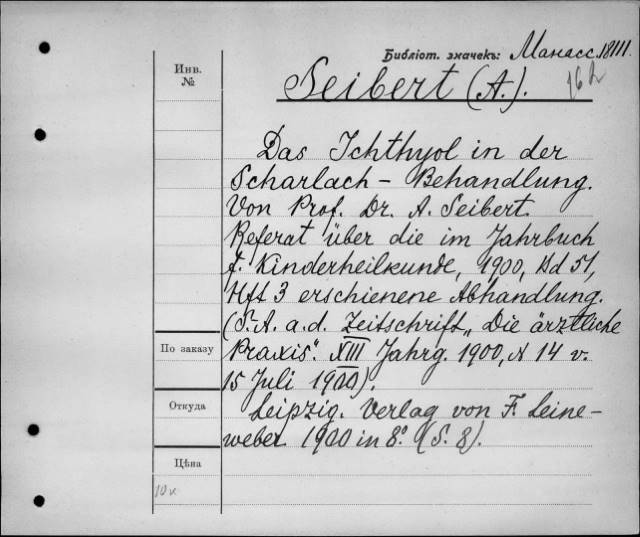 Библіот. значекъ: Манасс. 18111.
16 h
Инв.
№
Seibert (A.).
Das Ichthyol in der
Scharlach- Behandlung.
Von Prof. Dr. A. Seibert.
Referat über die im Jahrbuch
f. Kinderheilkunde, 1900, Bd 51,
Hft 3 erschienene Abhandlung.
(S.A. a.d. Zeitschrift „Die ärztliche
По заказу
Praxis“. XIII Jahrg. 1900, N 14 v.
15 Juli 1900).
Откуда
Leipzig. Verlag von F. Leine-
weber 1900 in 8°. (S. 8).
Цѣна
10 к